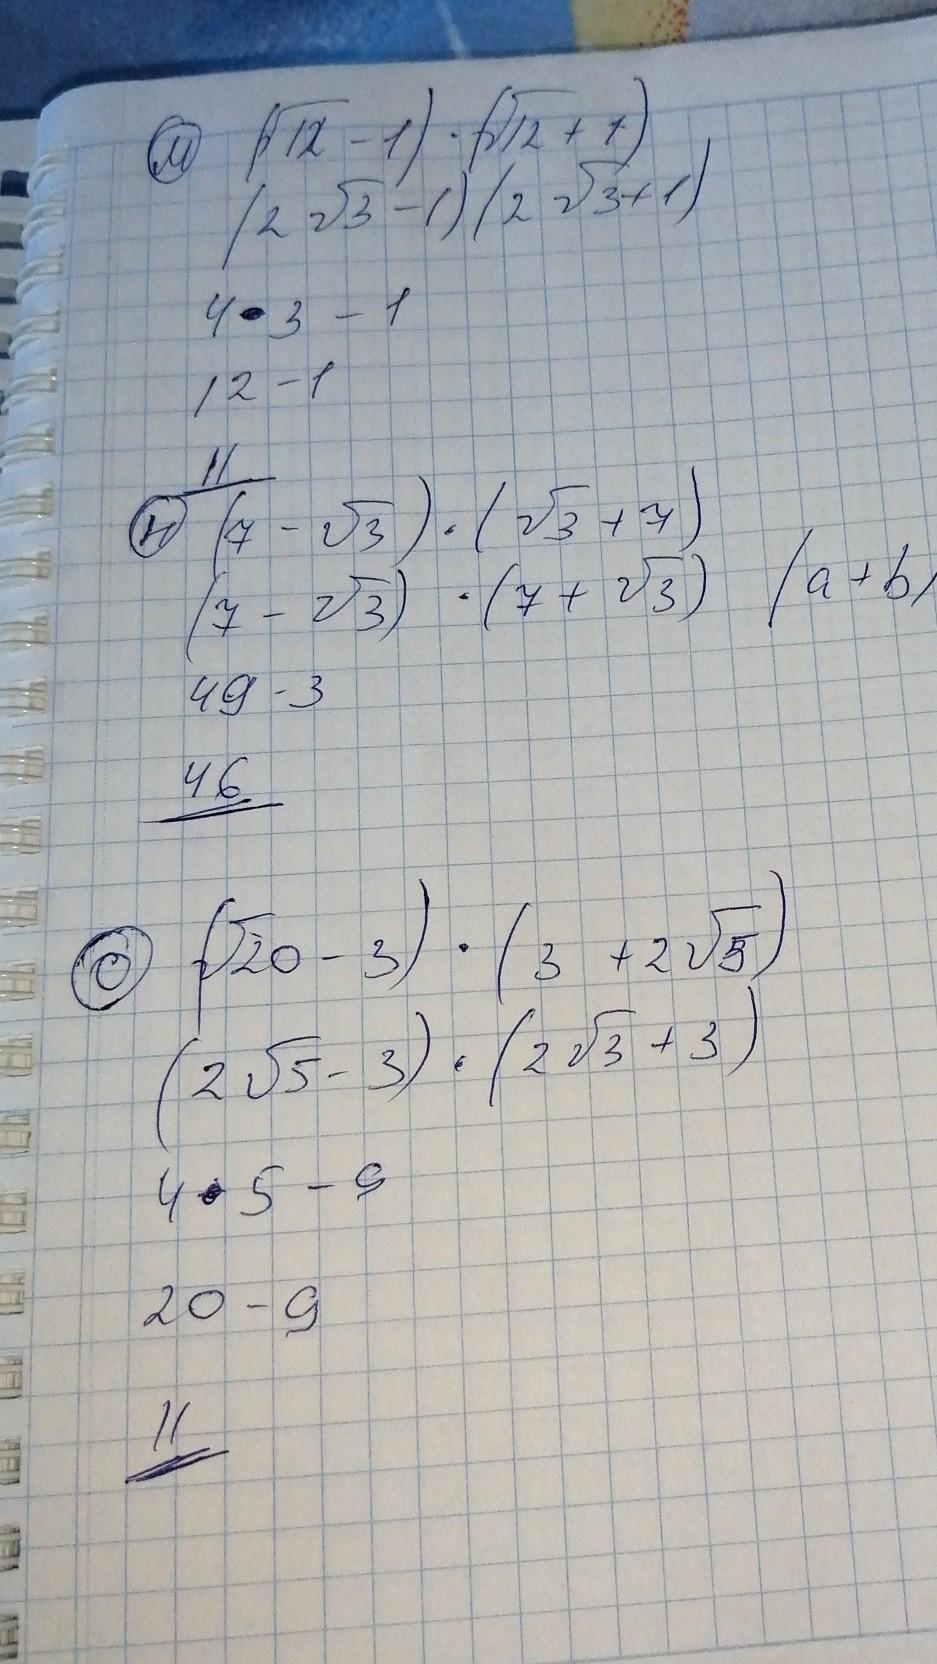 м (√12 - 1) · (√12 + 1)
(2√3 - 1)(2√3 + 1)
4 · 3 - 1
12 - 1
11
н (7 - √3) · (√3 + 7)
(7 - √3) · (7 + √3) (a + b)
49 - 3
46
о (√20 - 3) · (3 + 2√5)
(2√5 - 3) · (2√3 + 3)
4 · 5 - 9
20 - 9
11